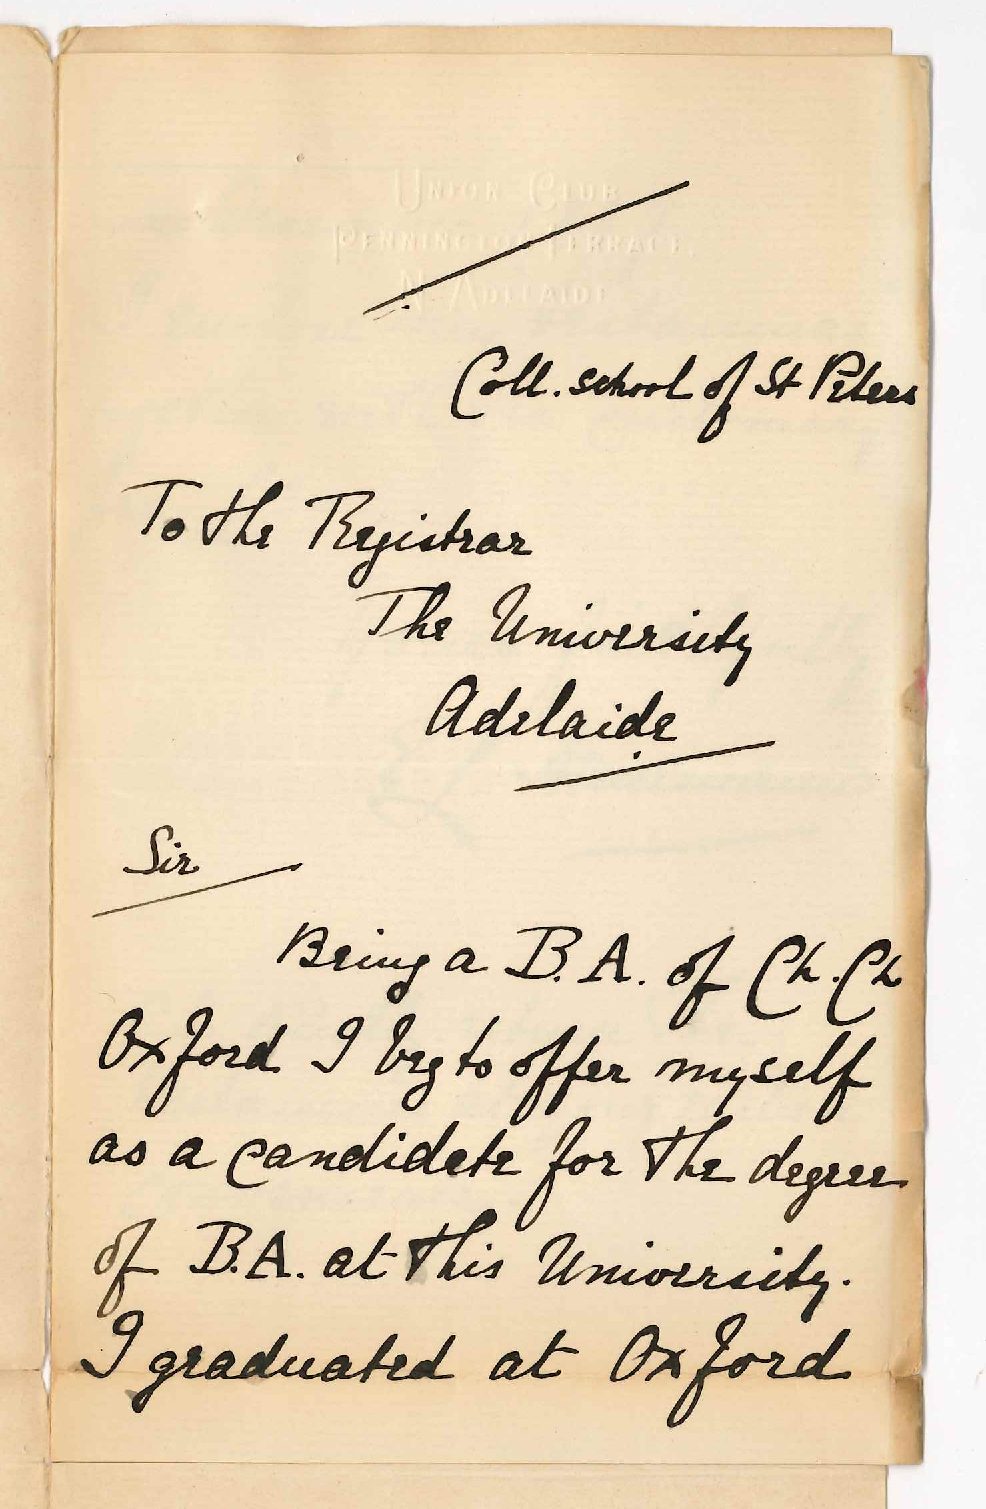 UNION CLUB
PENNINGTON TERRACE,
N. ADELAIDE
Coll. school of St Peters
To the Registrar
The University
Adelaide
Sir
Being a B.A. of Ch. Ch
Oxford I beg to offer myself
as a candidate for the degree
of B.A. at this University.
I graduated at Oxford